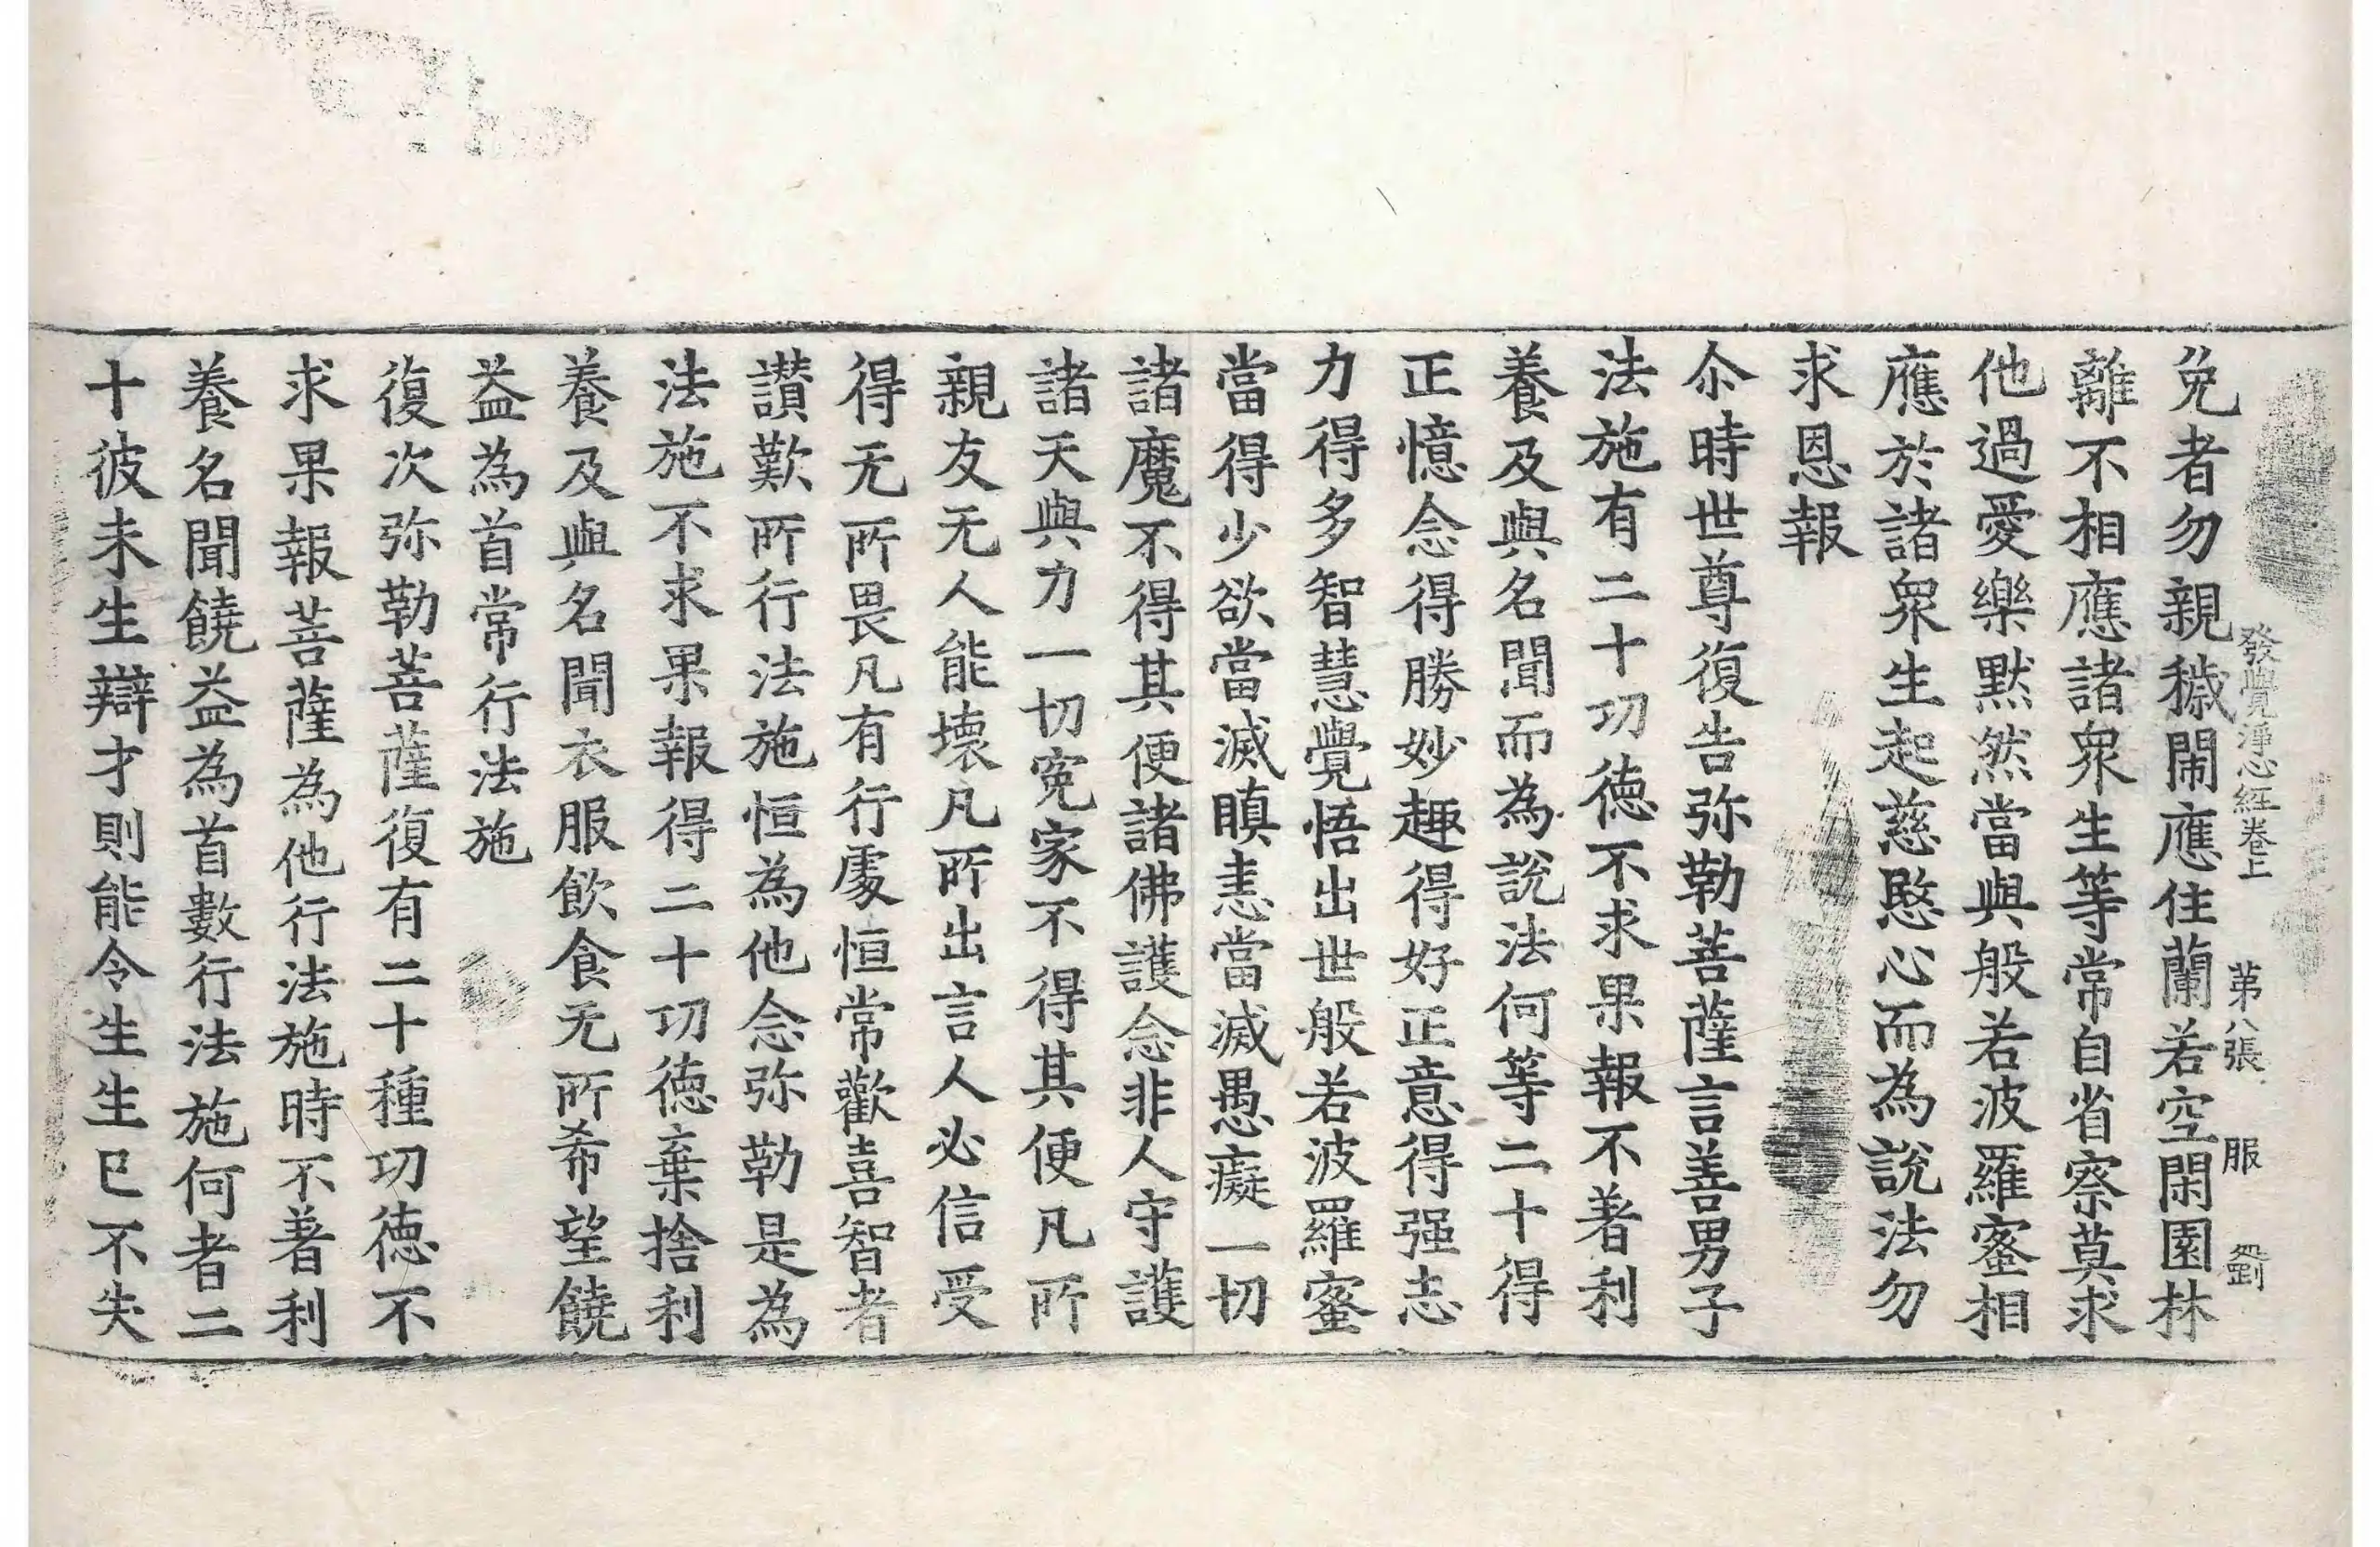 發覺淨心經卷上 苐八張 服 劉
免者勿親穢閙應住蘭若空閑園林
離不相應諸衆生等常自省察莫求
他過愛樂黙然當與般若波羅蜜相
應於諸衆生起慈愍心而為說法勿
求恩報
尒時世尊復告弥勒菩薩言善男子
法施有二十功德不求果報不著利
養及與名聞而為說法何等二十得
正憶念得勝妙趣得好正意得强志
力得多智慧覺悟出世般若波羅蜜
當得少欲當滅瞋恚當滅愚癡一切
諸魔不得其便諸佛護念非人守護
諸天與力一切寃家不得其便凡所
親友无人能壞凡所出言人必信受
得无所畏凡有行處恒常歡喜智者
讃歎所行法施恒為他念弥勒是為
法施不求果報得二十功德棄捨利
養及與名聞衣服飲食无所希望饒
益為首常行法施
復次弥勒菩薩復有二十種功德不
求果報菩薩為他行法施時不著利
養名聞饒益為首數行法施何者二
十彼未生辯才則能令生生巳不失